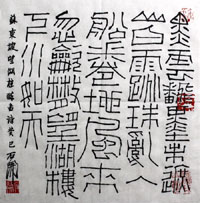 黑雲翻墨未遮
山白雨跳珠亂入
船卷地風來
忽吹散望湖樓
下水如天
蘇東坡望湖樓醉書詩癸巳